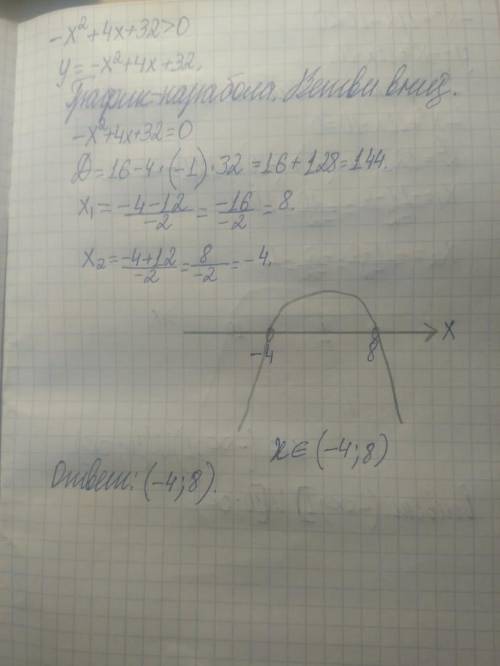 -x²+4x+32>0
y=-x²+4x+32,
График-парабола. Ветви вниз.
-x²+4x+32=0
D=16-4·(-1)·32=16+128=144.
x₁=(-4-12)/(-2)=(-16)/(-2)=8.
x₂=(-4+12)/(-2)=8/(-2)=-4.
-4 8 x
x∈(-4;8)
Ответ: (-4;8).